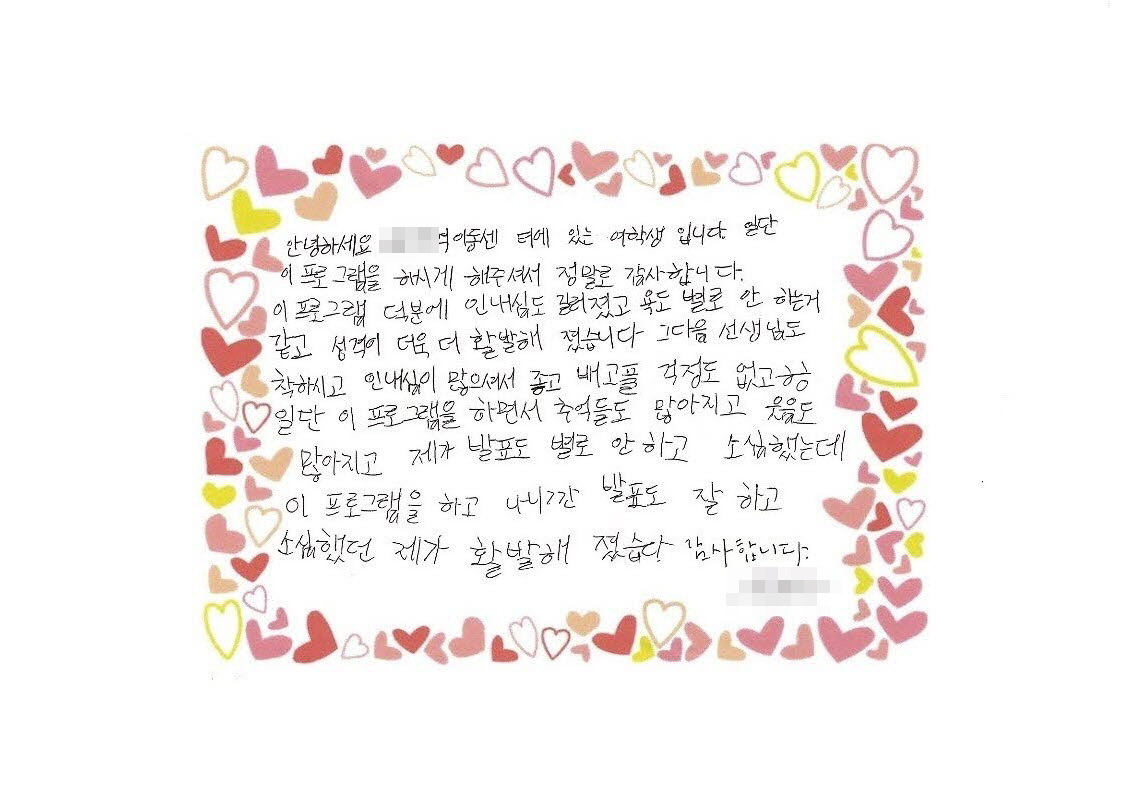 안녕하세요 역아동센 터에 있는 여학생 입니다. 일단
이 프로그램을 하시게 해주셔서 정말로 감사합니다.
이 프로그램 덕분에 인내심도 길러졌고 욕도 별로 안 하는거
같고 성격이 더욱 더 활발해 졌습니다 그다음 선생님도
착하시고 인내심이 많으셔서 좋고 배고플 걱정도 없고
일단 이 프로그램을 하면서 추억들도 많아지고 웃음도
많아지고 제가 발표도 별로 안 하고 소심했는데
이 프로그램을 하고 나니간 발표도 잘 하고
소심했던 제가 활발해 졌습다 감사합니다.